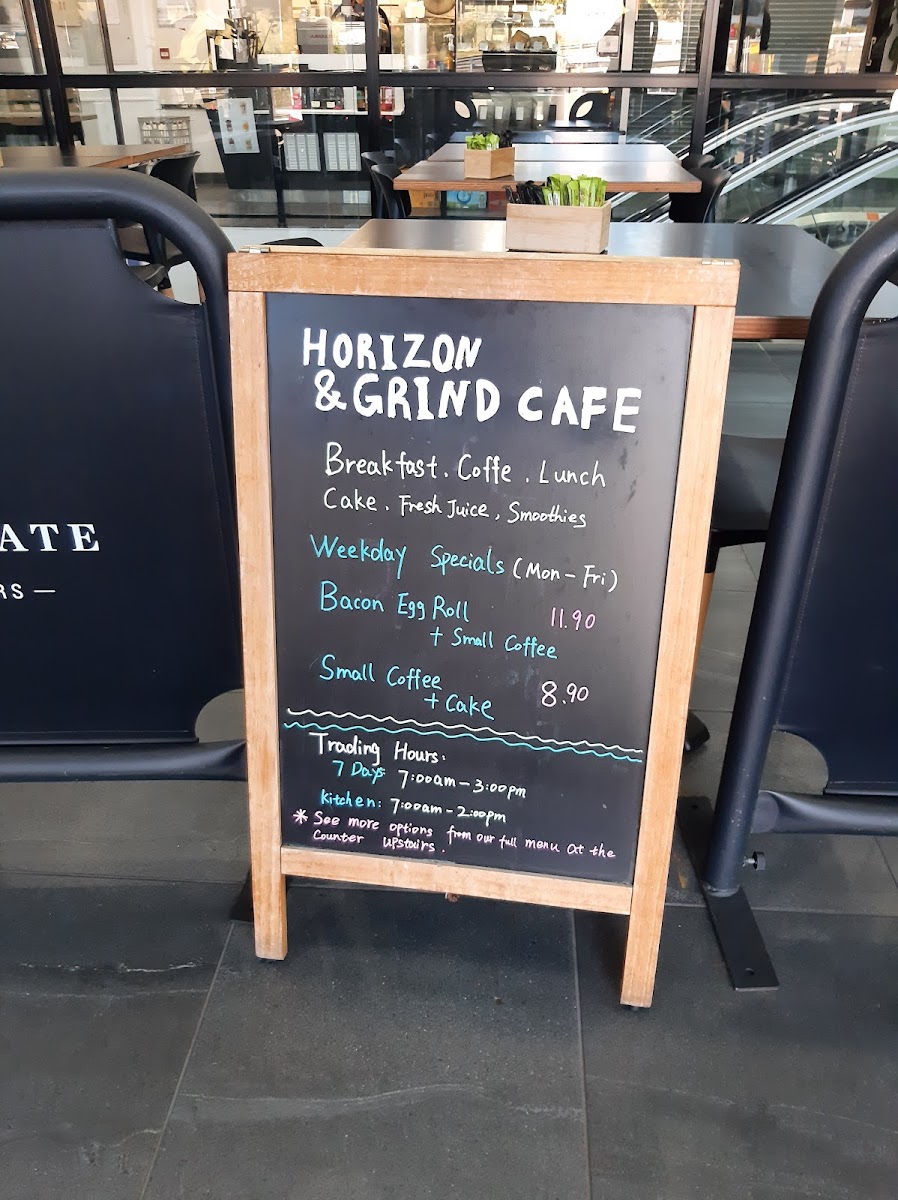 HORIZON
& GRIND CAFE
Breakfast . Coffe . Lunch
Cake . Fresh Juice , Smoothies
Weekday Specials (Mon - Fri)
Bacon Egg Roll 11.90
+ Small Coffee
Small Coffee
+ Cake 8.90
Trading Hours:
7 Days 7:00am - 3:00pm
Kitchen: 7:00am - 2:00pm
* See more options from our full menu at the
Counter upstairs .
ATE
RS —